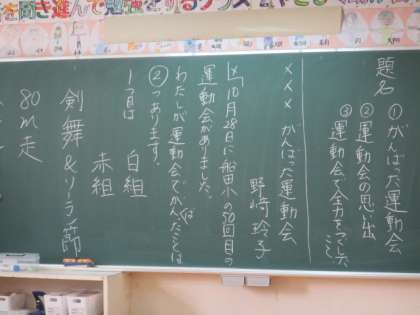 を聞き進んで勉強をするクラス
題名 ①がんばった運動会
②運動会の思い出
③運動会で全力をつくしたこと
××× がんばった運動会
野崎 玲子
10月28日に船田小の50回目の
運動会がありました。
わたしが運動会でがんばったことは
②つあります。
1つ目は
白組
赤組
剣舞&ソーラン節
80m走